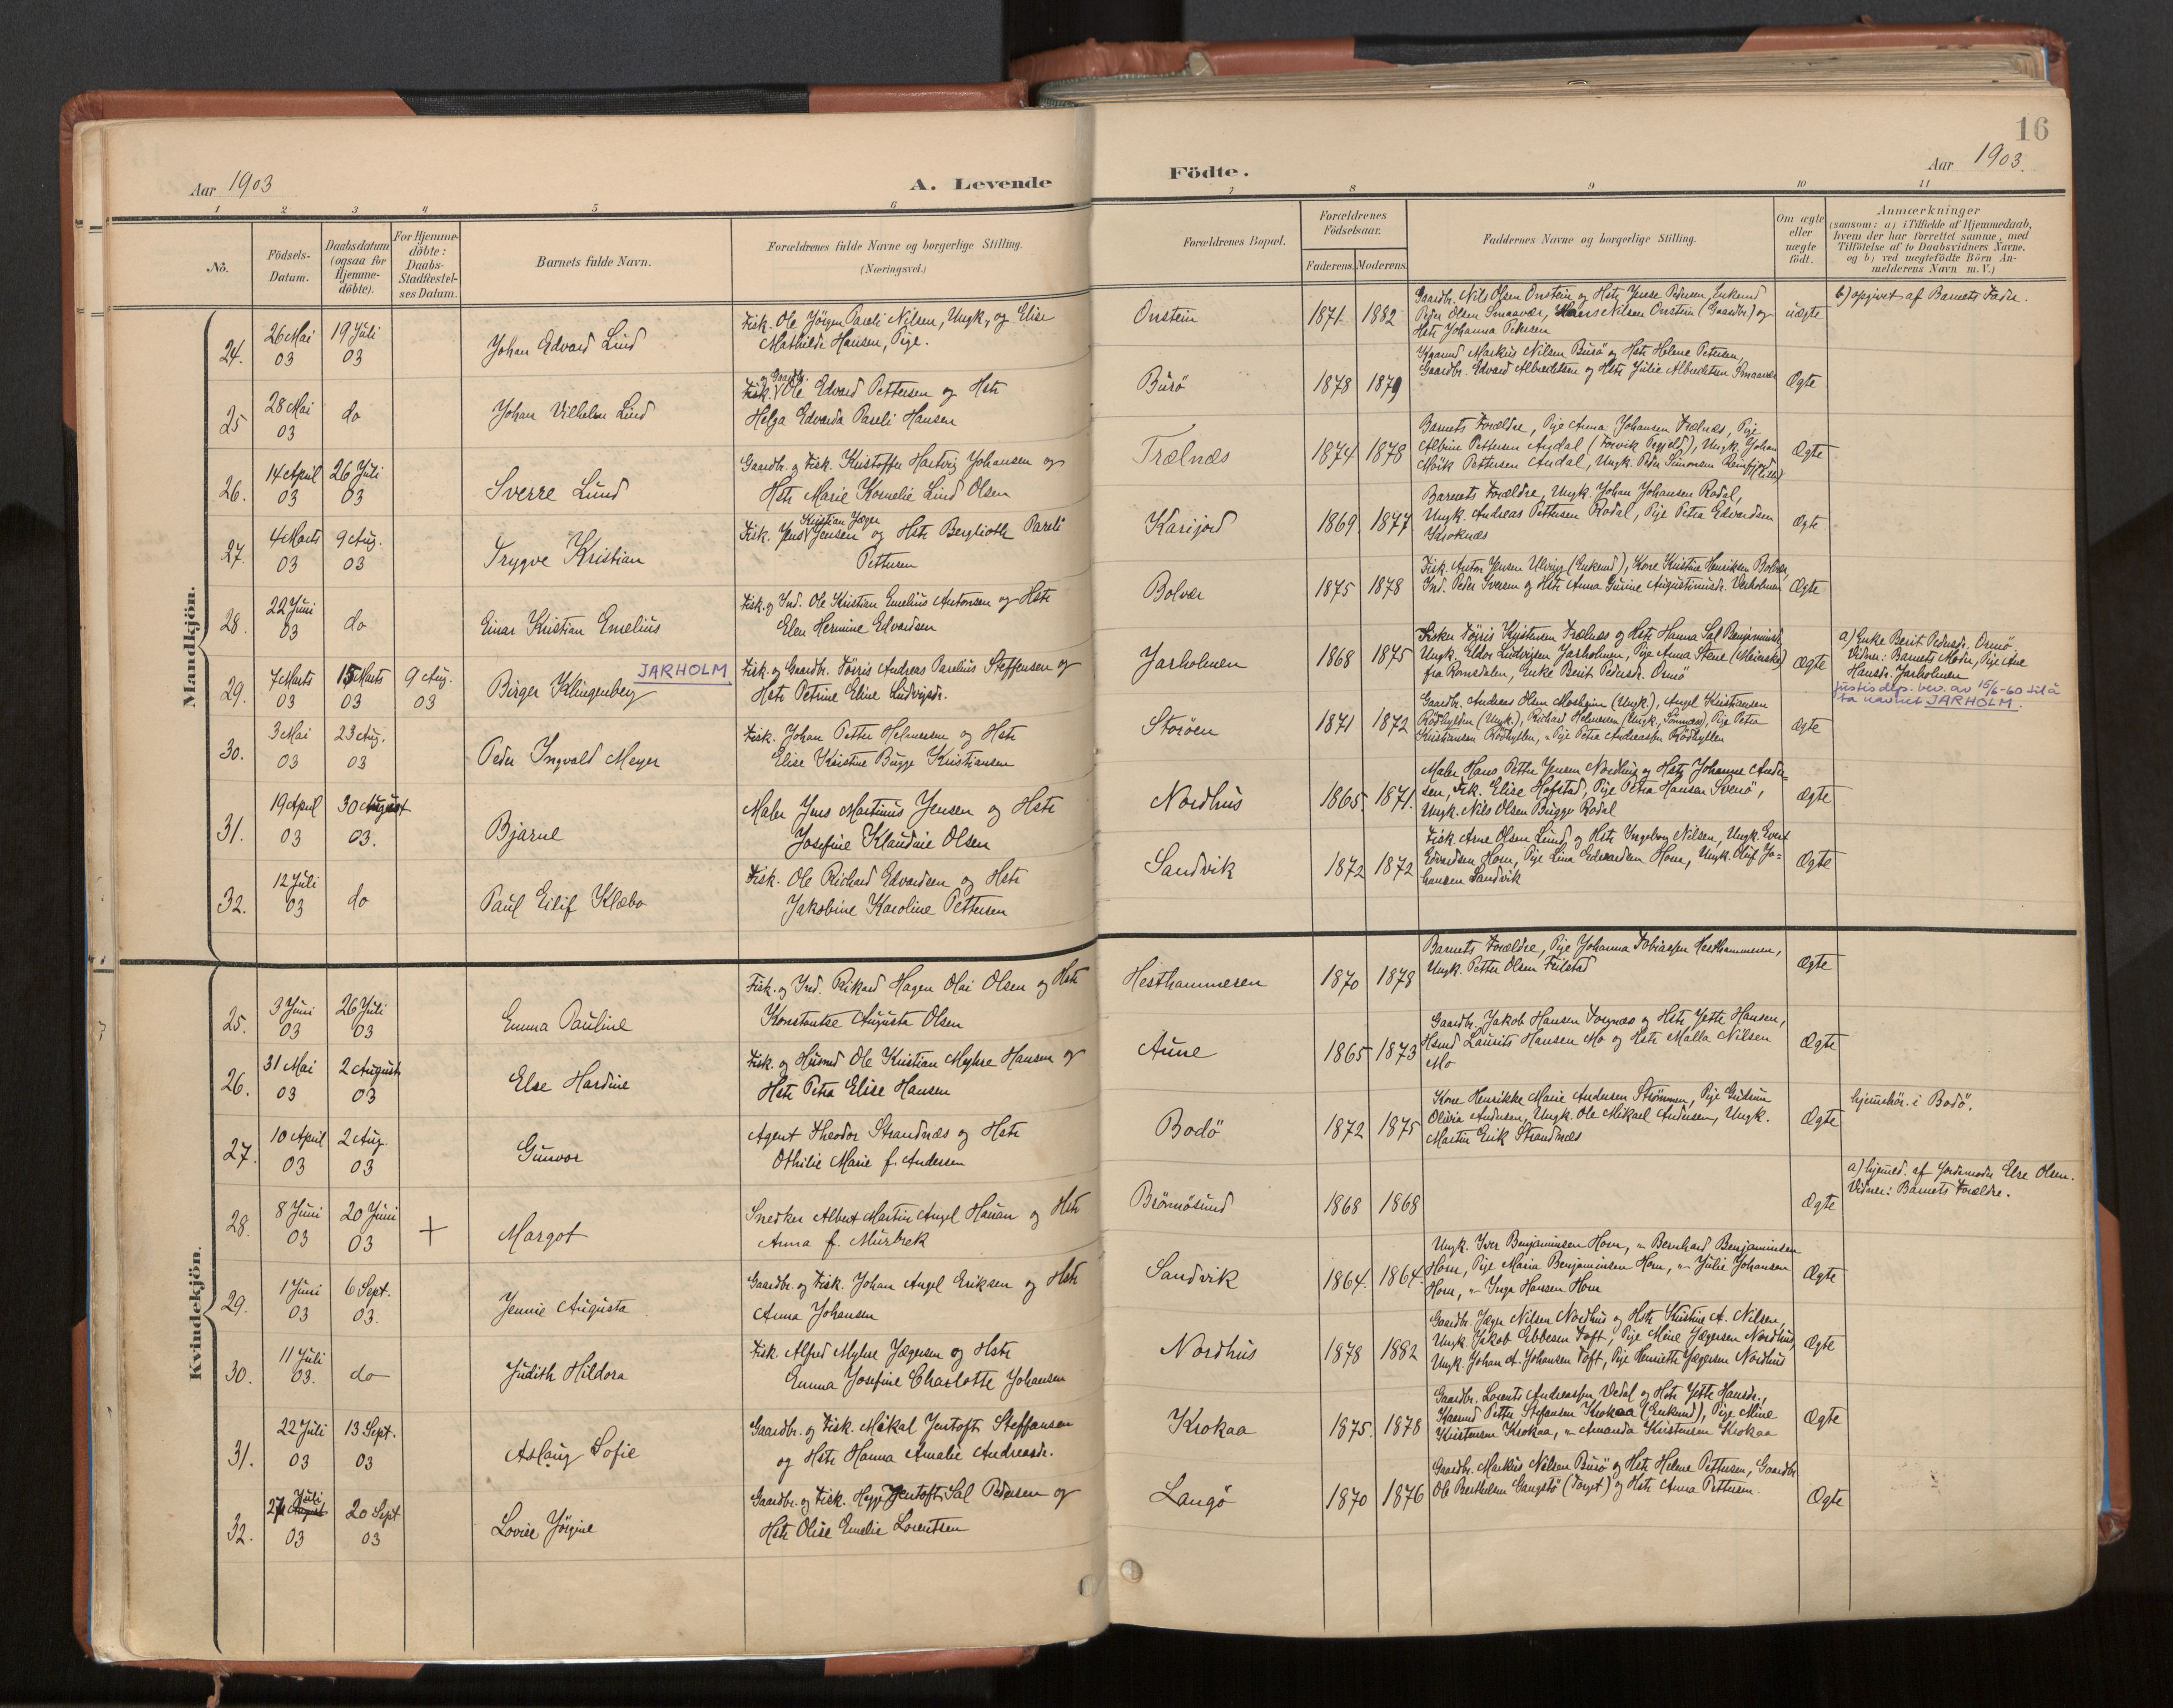 16
Aar 1903
A. Levende
Födte.
Aar 1903.
1 2 3 4 5 6 7 8 9 10 11
Nö.
Födsels-
Datum.
Daabsdatum
(ogsaa for
Hjemme-
döbte).
For Hjemme-
döbte:
Daabs-
Stadfæstel-
ses Datum.
Barnets fulde Navn.
Forældrenes fulde Navne og borgerlige Stilling.
(Næringsvei.)
Forældrenes Bopæl.
Forældrenes
Födselsaar.
Faderens. Moderens.
Faddernes Navne og borgerlige Stilling.
Om ægte
eller
uægte
födt.
Anmærkninger
(saasom: a) i Tilfælde af Hjemmedaab,
hvem der har forrettet samme, med
Tilföielse af to Daabsvidners Navne,
og b) ved uegtefödte Börn An-
melderens Navn m. V.)
Mandkjön.
24.
26 Mai
03
19 Juli
03
Johan Edvard Lind
Fisk. Ole Jörgen Pareli Nilsen, Ungk. og Elise
Mathilde Hansen, Pige.
Onstein
1871 1882
Gaardbr. Nils Olsen Onstein og Hstr Jense Pedersen, Enkemd
Peder Olsen Smaavær, Hans Nilsen Onstein (Gaardbr) og
Hstr Johanna Pedersen
uægte
b) opgivet af Barnets Fader.
25
28 Mai
03
do
Johan Vilhelm Lind
og Gaardbr.
Fisk. Ole Edvard Pettersen og Hstr
Helga Edvarda Pareli Hansen
Burö
1878 1879
Kaarmd Markus Nilsen Burö og Hstr Helene Petersen,
Gaardbr. Edvard Albrechtsen og Hstr Julie Albrechtsen Smaavær
Ægte
26.
14 April
03
26 Juli
03
Sverre Lund
Gaardbr. og Fisk. Kristoffer Hartvig Johansen og
Hstr Marie Kornelie Lind Olsen
Trælnæs
1874 1878
Barnets Forældre, Pige Anna Johansen Trælnæs, Pige
Albine Pettersen Andal (Torvik Prgjeld), Ungk. Johan
Moik Pettersen Andal, Ungk. Peder Simonsen
Ægte
27.
4 Marts
03
9 Aug.
03
Trygve Kristian
Kristian Jæger
Fisk. Jens Jensen og Hstr Bergliothe Pareli
Pettersen
Karijord
1869. 1877
Barnets Forældre, Ungk. Johan Johansen Rodal,
Ungk. Andreas Pettersen Rodal, Pige Petra Edvardsen
Ægte
28.
22 Juni
03
do
Einar Kristian Emelius
Fisk. og Ind. Ole Kristian Emelius Antonsen og Hstr
Elen Hermine Edvardsen
Bolvær
1875 1878
Fisk. Anton Jensen Ulving (Enkemd), Kone Kristine Henriksen Bolvær,
Ind. Peder Iversen og Hstr Anna Gurine Augustinusdr. Værholmen
Ægte
29.
7 Marts
03
15 Marts
03
9 Aug.
03
Birger Klingenberg
JARHOLM
Fisk. og Gaardbr. Töris Andreas Parelius Steffensen og
Hstr Petrine Eline Ludvigsdr.
Jarholmen
1868 1875
Fisker Töjris Kristensen Trælnæs og Hstr Hanna Sal Benjaminsdr,
Ungk. Eldor Ludvigsen Jarholmen, Pige Anna Stene (Meierske)
fra Romsdalen, Enke Berit Pedersdr. Ormö
Ægte
a) Enke Berit Pedersdr. Ormö,
Vidner: Barnets Moder, Pige Ane
Hansdr. Jarholmen
Justisdep. bev. av 15/6-60 til å
ta navnet JARHOLM.
30.
3 Mai
03
23 Aug.
03
Peder Ingvald Meyer
Fisk. Johan Petter Helmersen og Hstr
Elise Kristine Bugge Kristiansen
Storöen
1871 1872
Gaardbr. Andreas Olsen Mosheim (Ungk.), Angel Kristiansen
Rödhyllen (Ungk.), Richard Helmersen (Ungk, Sömnæs), Pige Petra
Kristiansen Rödhyllen, " Pige Petra Andreassen Rödhyllen
Ægte
31.
19 April
03
30 August
03.
Bjarne
Maler Jens Martinus Jensen og Hstr
Josefine Klaudine Olsen
Nordhus
1865. 1871.
Maler Hans Petter Jensen Nordhus og Hstr Johanne Ander-
sen, Frk. Elise Hofstad, Pige Petra Hansen Svenö,
Ungk. Nils Olsen Bugge Rodal
Ægte
32.
12 Juli
03
do
Paul Eilif Klæbo
Fisk. Ole Richard Edvardsen og Hstr
Jakobine Karoline Pettersen
Sandvik
1872 1872
Fisk. Arne Olsen Lund og Hstr Ingeborg Nilsen, Ungk. Evert
Edvardsen Horn, Pige Lina Edvardsen Horn, Ungk. Oluf Jo-
hansen Sandvik
Ægte
Kvindekjön.
25.
3 Juni
03
26 Juli
03
Emma Pauline
Fisk. og Ind. Rikard Hagen Olai Olsen og Hstr
Konstantse Augusta Olsen
Hesthammeren
1870 1878
Barnets Forældre, Pige Johanna Tobiassen Hesthammeren,
Ungk. Petter Olsen Feilstad
Ægte
26.
31 Mai
03
2 August
03
Else Hardine
Fisk. og Husmd Ole Kristian Myhre Hansen og
Hstr Petra Elise Hansen
Aune
1865 1873
Gaardbr. Jakob Hansen Torgnæs og Hstr Jette Hansen,
Hsmd Laurits Hansen Mo og Hstr Malla Nilsen
Mo
Ægte
27.
10 April
03
2 Aug.
03
Gunvor
Agent Theodor Strandnæs og Hstr
Othilie Marie f. Andersen
Bodö
1872 1875
Kone Henrikke Marie Andersen Strömmen, Pige Gudrun
Olivia Andersen, Ungk. Ole Mikael Andersen, Ungk.
Martin Erik Strandnæs
Ægte
hjemhör. i Bodö.
28.
8 Juni
03
20 Juni
03
+
Margot
Snedker Albert Martin Angel Hauan og Hstr
Anna f. Murbræk
Brönnösund
1868 1868
Ægte
a) hjemed. af Jordemoder Else Olsen.
Vidner: Barnets Forældre.
29.
1 Juni
03
6 Sept.
03.
Jennie Augusta
Gaardbr. og Fisk. Johan Angel Eriksen og Hstr
Anna Johansen
Sandvik
1864. 1864.
Ungk. Iver Benjaminsen Horn, " Bernhard Benjaminsen
Horn, Pige Maria Benjaminsen Horn, " Julie Johansen
Horn, " Inga Hansen Horn
Ægte
30.
11 Juli
03.
do
Judith Hildora
Fisk. Alfred Myhre Jægersen og Hstr
Emma Josefine Charlotte Johansen
Nordhus
1878 1882
Gaardbr. Jæger Nilsen Nordhus og Hstr Kristine A. Nilsen,
Ungk. Jakob Ebbesen Toft, Pige Mine Jægersen Nordhus,
Ungk. Johan A. Johansen Toft, Pige Henriette Jægersen Nordhus
Ægte
31.
22 Juli
03
13 Sept.
03
Aslaug Sofie
Gaardbr. og Fisk. Mikal Jentoft Steffensen
og Hstr Hanna Amalie Andreasdr.
Krokaa
1875. 1878
Gaardbr. Lorents Andreassen Vedal og Hstr Jette Hansdr.,
Kaarmd Petter Stefansen Krokaa (Enkemd), Pige Mine
Kristensen Krokaa, " Amanda Kristensen Krokaa
Ægte
32.
Juli
27 August
03
20 Sept
03
Lovise Jörgine
Gaardbr. og Fisk. Jentoft Sal Pedersen og
Hstr Olise Emelie Lorentsen
Langö
1870 1876
Gaardbr. Markus Nilsen Burö og Hstr Helene Pettersen, Gaardbr
Ole Berthelsen Gangstö (Torget) og Hstr Anna Pettersen.
Ægte